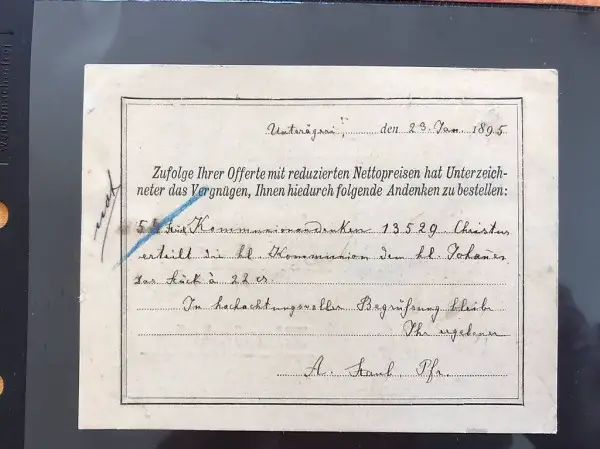 Unterägeri, den 23. Jan. 1895
Zufolge Ihrer Offerte mit reduzierten Nettopreisen hat Unterzeich-
neter das Vergnügen, Ihnen hiedurch folgende Andenken zu bestellen:
Stück Kommunionandenken 13529 Christus
erteilt die hl. Kommunion dem hl. Johannes
das Stück à 22 cs.
In hochachtungsvoller Begrüßung bleibe
Ihr ergebener
A. Staub, Pfr.